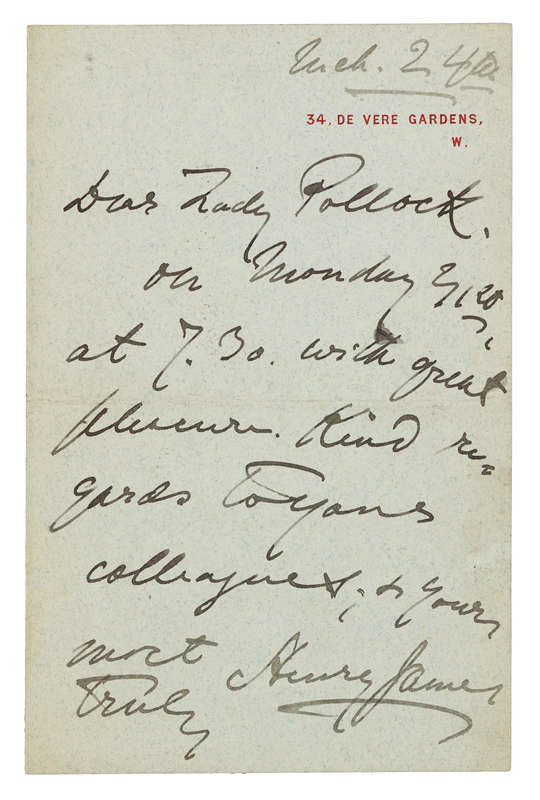 Mch. 24th
34, DE VERE GARDENS,
W.
Dear Lady Pollock,
on Monday
at 7.30. with great
pleasure. Kind re=
gards to your
colleagues, & yours
most Henry James
truly